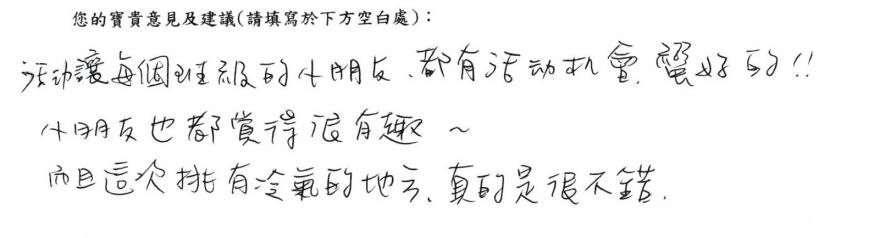 您的寶貴意見及建議(請填寫於下方空白處)：
活动讓每個班級的小朋友、都有活动机會,蠻好的!!
小朋友也都覺得很有趣~
而且這次挑有冷氣的地方、真的是很不錯.